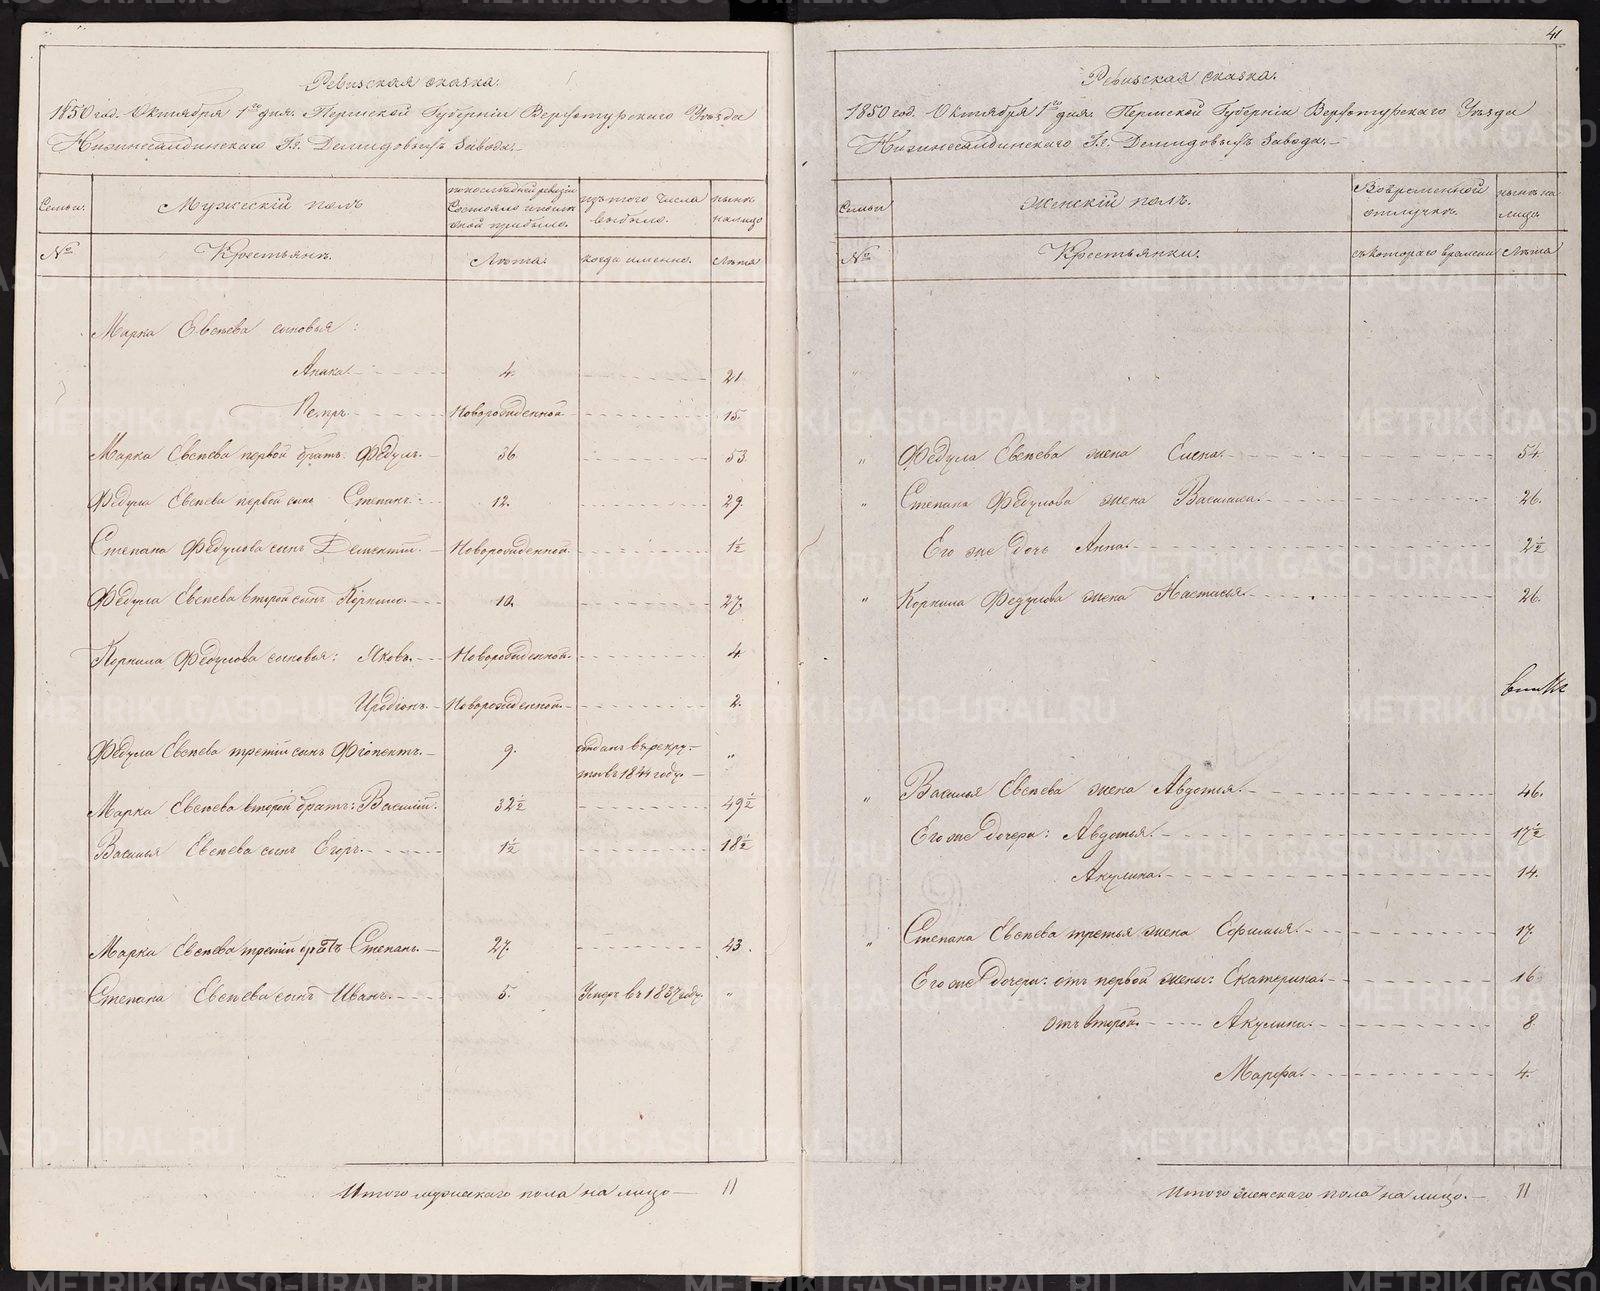 Ревизская сказка.
1850 год. Октября 1го дня. Пермской Губерніи Верхотурскаго Уѣзда
Нижнесалдинскаго Г.г. Демидовыхъ Завода.
Семьи.
Мужескій полъ
по последней ревизіи
Состояло и после
оной прибыло.
изъ того числа
выбыло.
нынѣ
на лицо
№
Крестьянъ.
Лѣта.
когда именно.
Лѣта
Марка Евсѣева сыновья:
4. 21
Петръ Новорожденной 15.
Марка Евсѣева первой братъ Федулъ. 36. 53.
Федула Евсѣева первой сынъ Степанъ: 12. 29.
Степана Федулова сынъ Дементій. Новорожденной 1½
Федула Евсѣева второй сынъ Корнило. 10. 27.
Корнила Федулова сыновья: Яковъ. Новорожденной. 4.
Иродіонъ. Новорожденной. 2.
Федула Евсѣева третій сынъ 9. отданъ въ рекру- „
ты въ 1844 году.
Марка Евсѣева второй братъ: Василій. 32½ 49½
Василья Евсѣева сынъ Егоръ. 1½ 18½
Марка Евсѣева третій братъ Степанъ. 27. 43.
Степана Евсѣева сынъ Иванъ. 5. Умеръ въ 1837 году. „
Итого мужескаго пола на лицо 11
41
Ревизская сказка.
1850 год. Октября 1го дня. Пермской Губерніи Верхотурскаго Уѣзда
Нижнесалдинскаго Г.г. Демидовыхъ Завода.
Семьи
Женскій полъ.
Во временной
отлучкѣ.
нынѣ на
лицо
№
Крестьянки.
съ котораго времени
Лѣта
„ Федула Евсѣева жена Елена. 54.
„ Степана Федулова жена Василиса. 26.
Его же дочь Анна. 2½
„ Корнила Федулова жена Настасья. 26.
„ Василья Евсѣева жена Авдотья. 46.
Его же дочери: Авдотья. 17½
Акулина. 14.
„ Степана Евсѣева третья жена Ефимья. 17.
Его же дочери: отъ первой жены: Екатерина. 16
отъ второй. Акулина. 8
Марфа. 4.
Итого женскаго пола на лицо. 11
METRIKI.GASO-URAL.RU